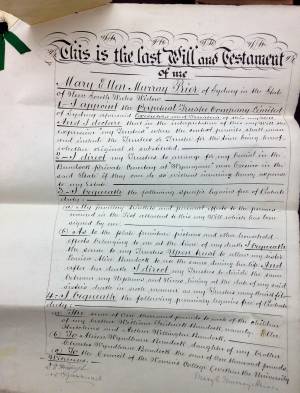 This is the last Will and Testament
of me
Mary Ellen Murray Prior of Sydney in the State
of New South Wales Widow
1. I appoint the Perpetual Trustee Company Limited
of Sydney aforesaid Executors and Trustees of this my Will
And I declare that in the interpretation of this my Will the
expression my Trustees where the context permits shall mean
and include the Trustees or Trustee for the time being hereof
whether original or substituted
2. I direct my Trustees to arrange for my burial in the
Bundock Private Cemetery at Wyangarie near Casino in the
said State if they can do so without incurring heavy expense
to my Estate
3. I bequeath the following specific legacies free of Probate
duty:
(a) My family trinkets and personal effects to the persons
named in the List attached to this my Will which has been
signed by me
(b) As to the plate furniture pictures and other household
effects belonging to me at the time of my death I bequeath
the same to my Trustees Upon trust to allow my sister
Louisa Alice Bundock to use the same during her life And
after her death I direct my Trustees to divide the same
between my Nephews and Nieces living at the date of my said
sisters death in such manner as my Trustees may think fit
4. I bequeath the following pecuniary legacies free of Probate
duty:
(a) The sum of One thousand pounds to each of the children
of my brother William Frederick Bundock namely: Ellen
and William Bundock
(b) To Alexa Wyndham Bundock daughter of my brother
Charles Wyndham Bundock the sum of One thousand pounds
(c) To the Council of the Womens College within the University
Witnesses